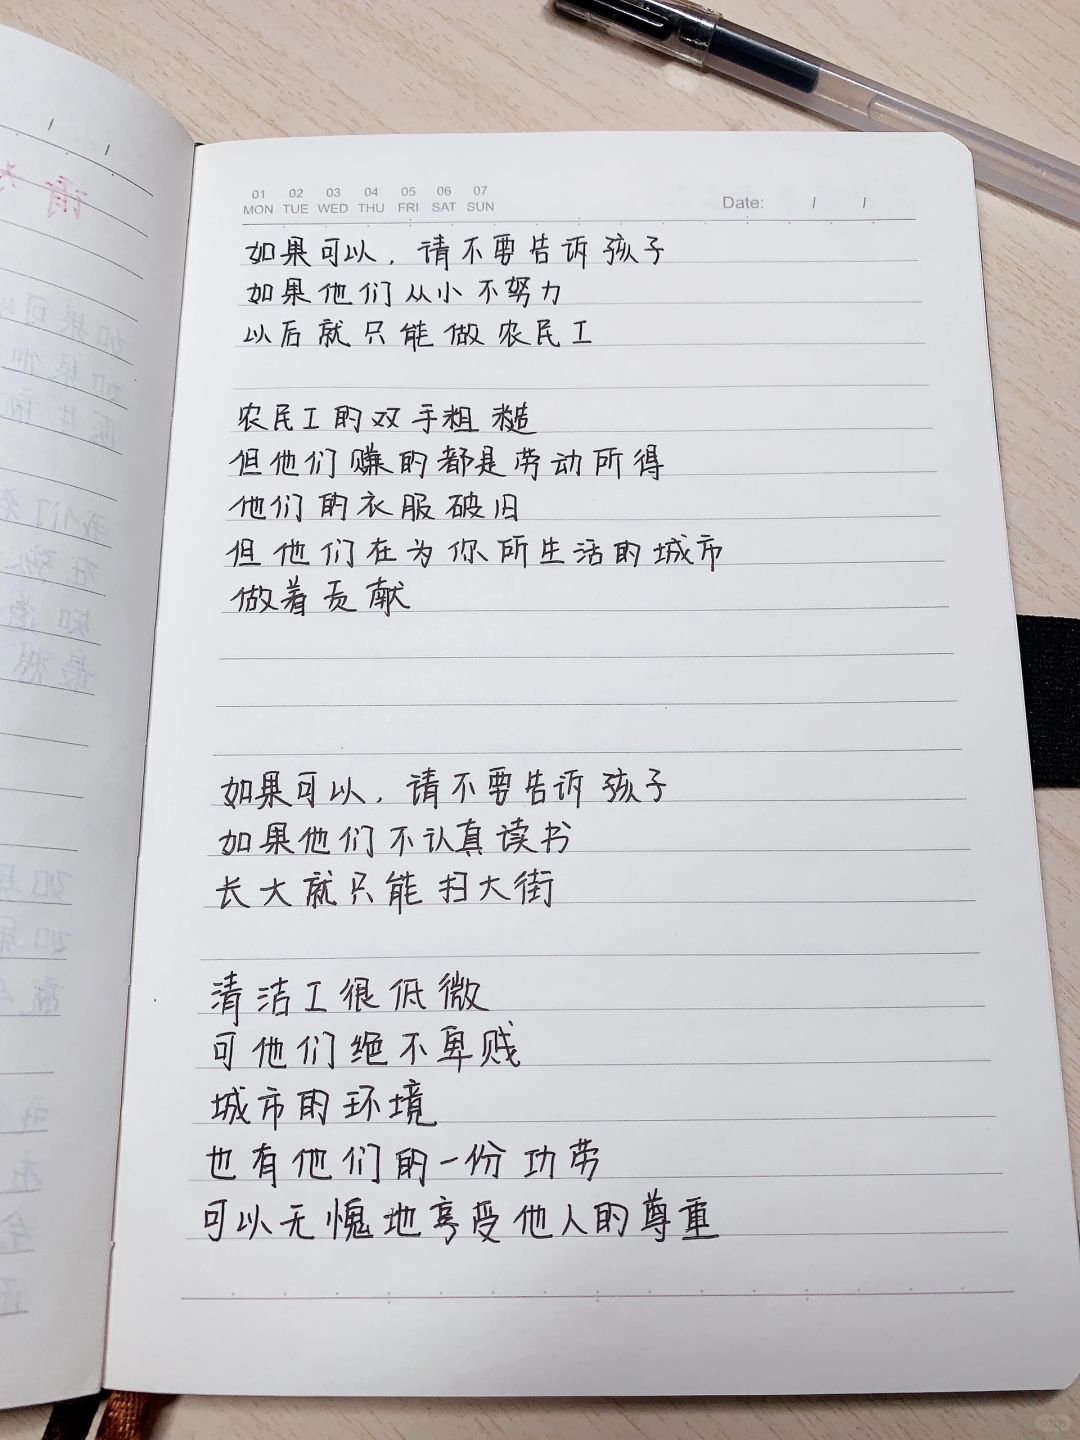 01 02 03 04 05 06 07
MON TUE WED THU FRI SAT SUN
Date: / /
如果可以，请不要告诉孩子
如果他们从小不努力
以后就只能做农民工
农民工的双手粗糙
但他们赚的都是劳动所得
他们的衣服破旧
但他们在为你所生活的城市
做着贡献
如果可以，请不要告诉孩子
如果他们不认真读书
长大就只能扫大街
清洁工很低微
可他们绝不卑贱
城市的环境
也有他们的一份功劳
可以无愧地享受他人的尊重